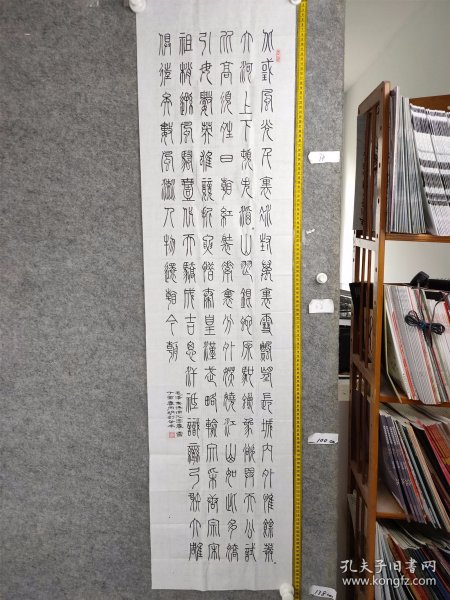 北國風光千里冰封萬里雪飄望長城內外惟餘莽
大河上下頓失滔山舞銀蛇原馳蠟象欲與天公試
比高須晴日看紅裝素裹分外妖嬈江山如此多嬌
引無數英雄競折腰惜秦皇漢武略輸文采唐宗宋
祖稍遜風騷一代天驕成吉思汗祇識彎弓射大雕
俱往矣數風流人物還看今朝
100 cm
138 cm
孔夫子旧书网
www.kongfz.com